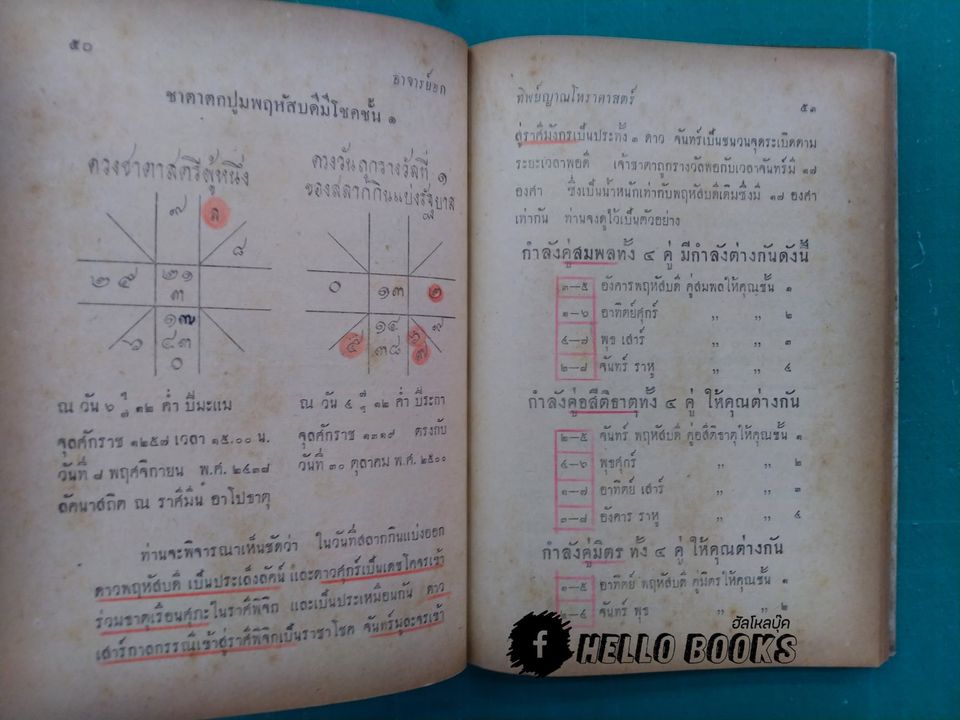 ๕๐
อาจารย์เอก
ชาตาตกปูมพฤหัสบดีมีโชคชั้น ๑
ดวงชาตาสตรีผู้หนึ่ง
๗ ล
๘
๒ ๙ ๒๑
๓
๑๗
๖ ๔๓
๐
ดวงวันถูกรางวัลที่ ๑
ของสลากกินแบ่งรัฐบาล
๐ ๑๓ ๒
๙
๕ ๑๔ ๖
๓๘ ๗
ณ วัน ๖ ๑๒ ค่ำ ปีมะแม
จุลศักราช ๑๒๕๗ เวลา ๑๕.๐๐ น.
วันที่ ๘ พฤศจิกายน พ.ศ. ๒๔๓๘
ลัคนาสถิต ณ ราศีมีน อาโปธาตุ
ณ วัน ๔ ๑๒ ค่ำ ปีระกา
จุลศักราช ๑๓๑๙ ตรงกับ
วันที่ ๓๐ ตุลาคม พ.ศ. ๒๕๐๐
ท่านจะพิจารณาเห็นชัดว่า ในวันที่สลากกินแบ่งออก
ดาวพฤหัสบดี เป็นประเด็งลัคน์ และดาวศุกร์เป็นเดชโคจรเข้า
ร่วมธาตุเรือนศุภะในราศีพิจิก และเป็นประเหมือนกัน ดาว
เสาร์กาลกรรณีเข้าสู่ราศีพิจิกเป็นราชาโชค จันทร์มูละจรเข้า
ทิพย์ญาณโหราศาสตร์
๕๑
สู่ราศีมังกรเป็นประทั้ง ๓ ดาว จันทร์เป็นชนวนจุดระเบิดตาม
ระยะเวลาพอดี เจ้าชาตาถูกรางวัลพอกับเวลาจันทร์มี ๑๗
องศา ซึ่งเป็นน้ำหนักเท่ากับพฤหัสบดีเดิมซึ่งมี ๑๗ องศา
เท่ากัน ท่านจงดูไว้เป็นตัวอย่าง
กำลังคู่สมพลทั้ง ๔ คู่ มีกำลังต่างกันดังนี้
๓—๕ อังคารพฤหัสบดี คู่สมพลให้คุณชั้น ๑
๑—๖ อาทิตย์ศุกร์ ,, ,, ๒
๔—๗ พุธ เสาร์ ,, ,, ๓
๒—๘ จันทร์ ราหู ,, ,, ๔
กำลังคู่อสีติธาตุทั้ง ๔ คู่ ให้คุณต่างกัน
๒—๕ จันทร์ พฤหัสบดี คู่อสีติธาตุให้คุณชั้น ๑
๔—๖ พุธศุกร์ ,, ,, ๒
๑—๗ อาทิตย์ เสาร์ ,, ,, ๓
๓—๘ อังคาร ราหู ,, ,, ๔
กำลังคู่มิตร ทั้ง ๔ คู่ ให้คุณต่างกัน
๑—๕ อาทิตย์ พฤหัสบดี คู่มิตรให้คุณชั้น ๑
๒—๔ จันทร์ พุธ ,, ,, ๒
ฮัลโหลบุ๊ค
f HELLO BOOKS